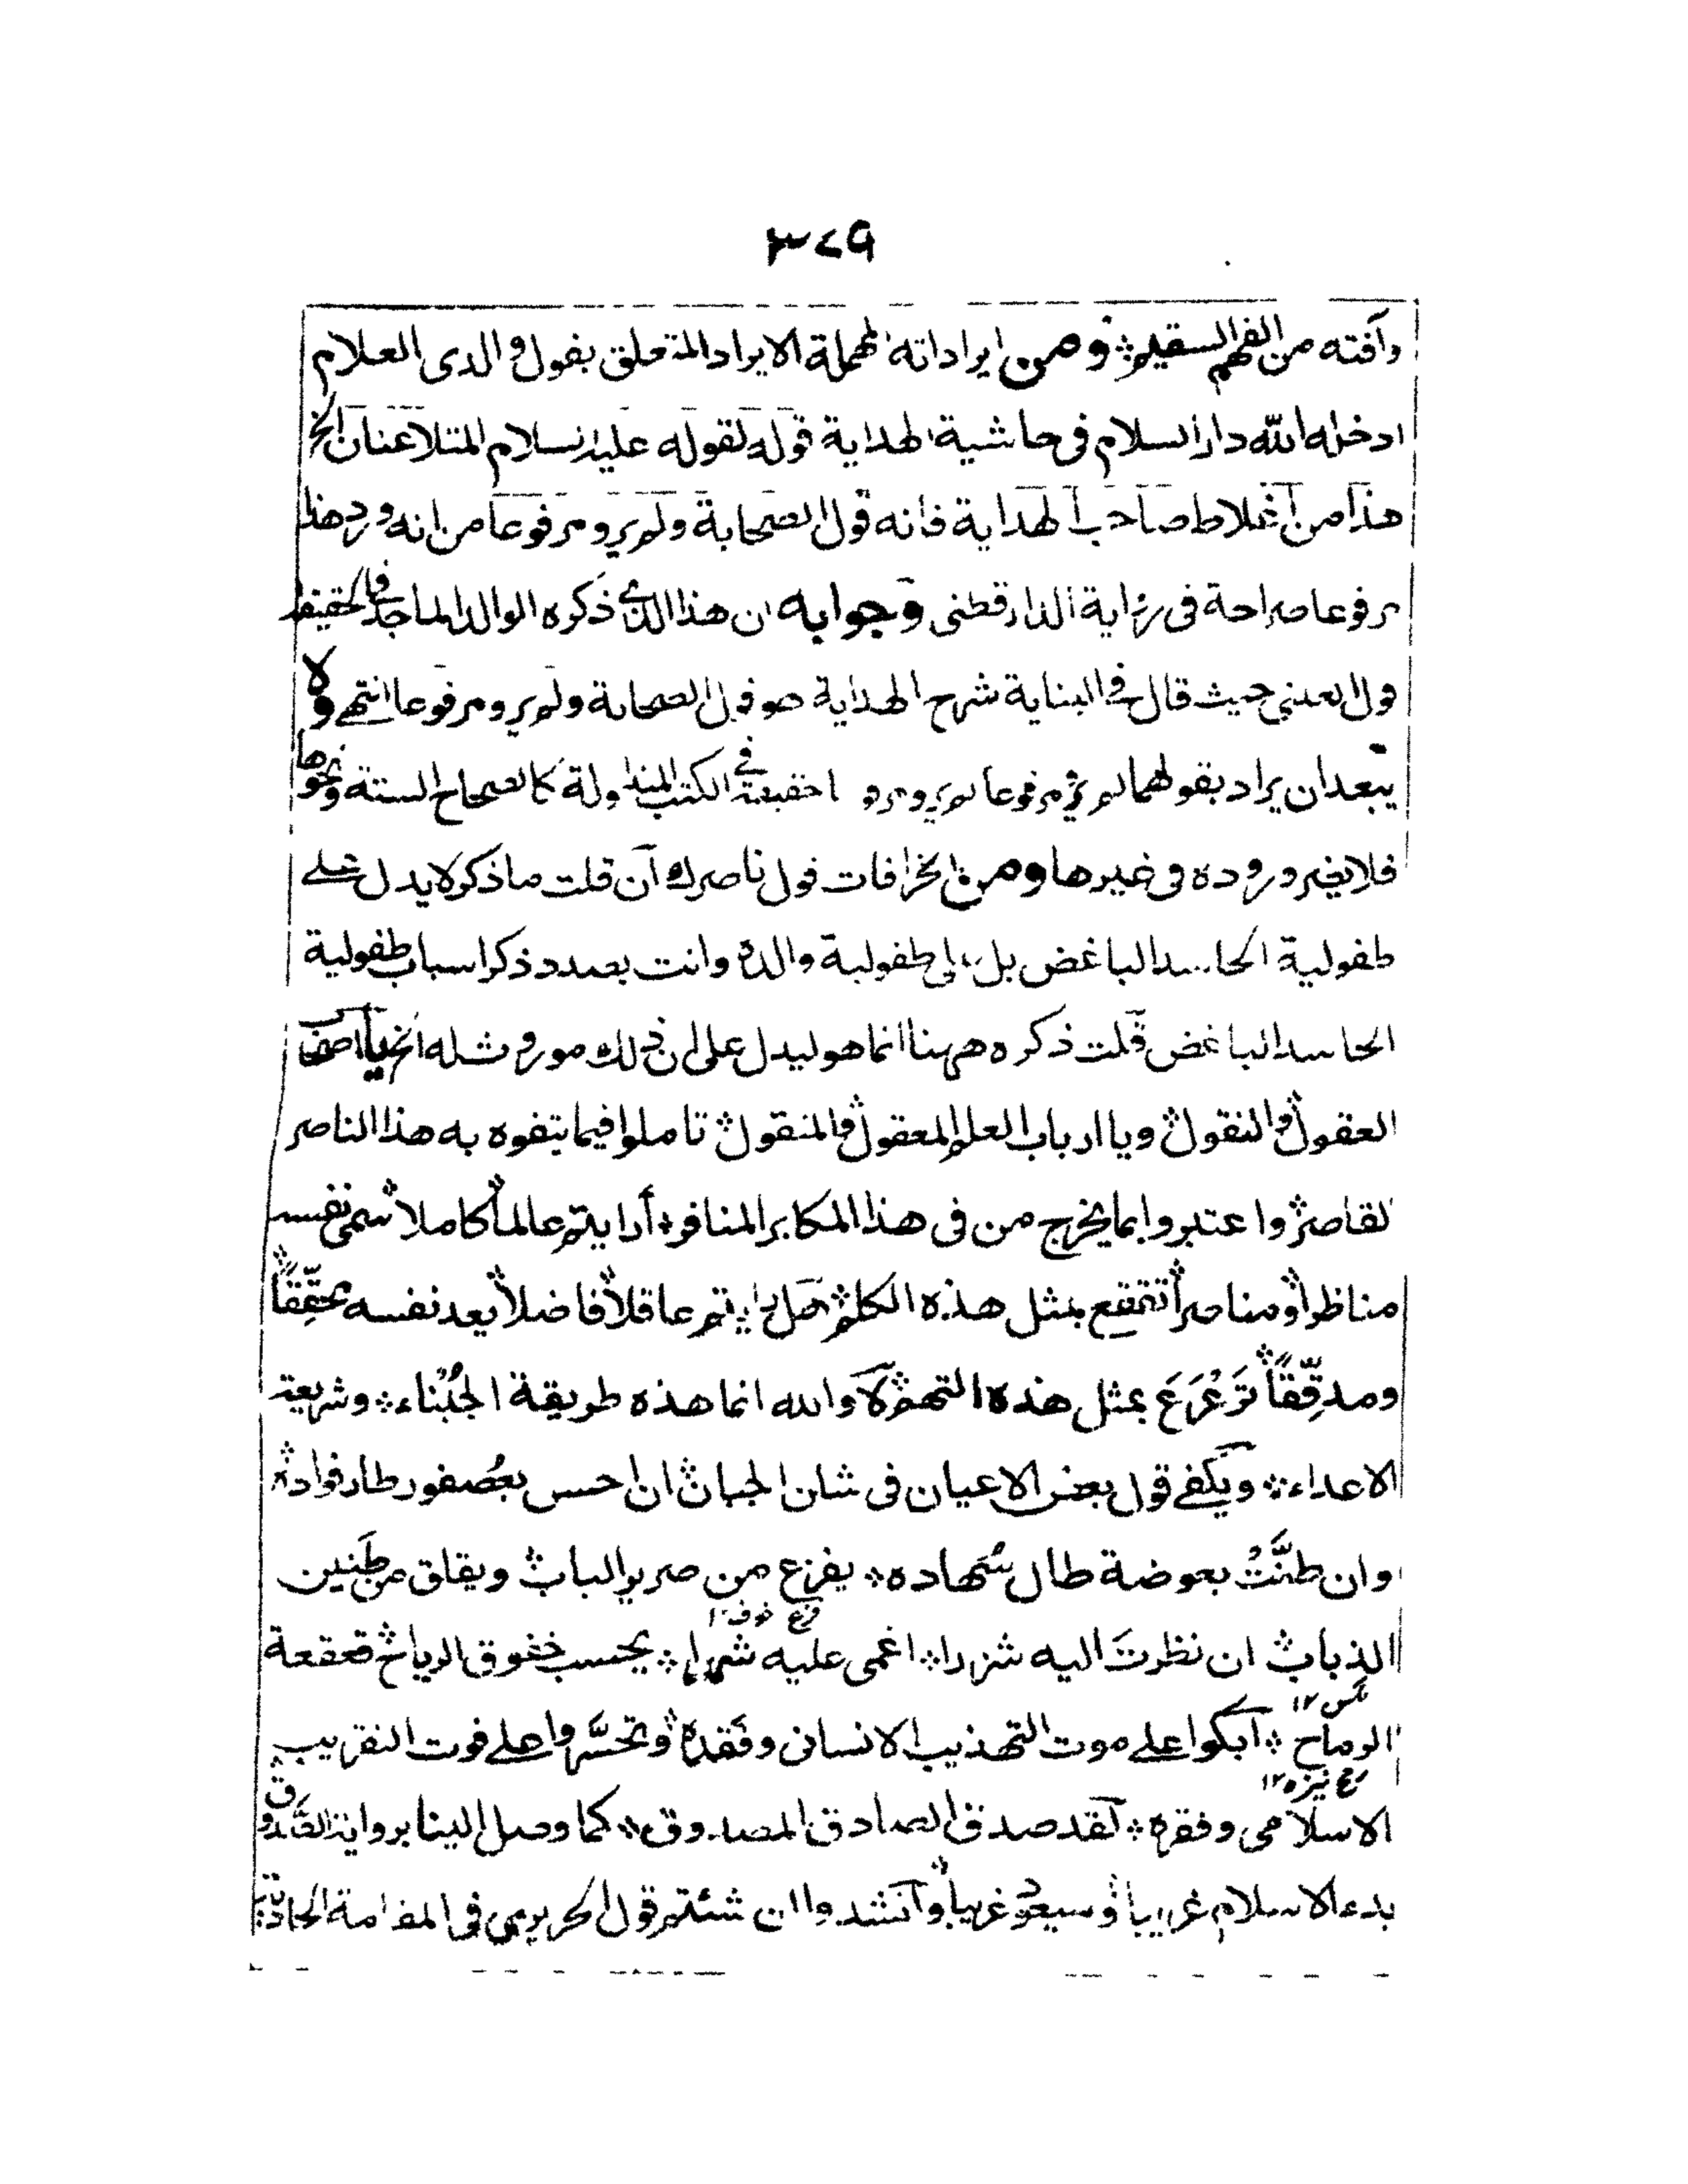 ٣٧٩
وآفته من الفهم السقيم ومن ايراداته المهملة الايراد المتعلق بقول والدى العلام
ادخله الله دار السلام فى حاشية الهداية قوله لقوله عليه السلام المتلاعنان الخ
هذا من اغلاط صاحب الهداية فانه قول الصحابة ولم يرو مرفوعا من انه ورد هذا
مرفوعا صراحة فى رواية الدارقطنى وجوابه ان هذا الذى ذكره الوالد الماجد فى الحقيقة
قول العينى حيث قال فى البناية شرح الهداية هو قول الصحابة ولم يرو مرفوعا انتهے ولا
يبعد ان يراد بقولهما لم يرو مرفوعا لم يرو مرفوعا حقيقة فى الكتب المتداولة كالصحاح الستة ونحوها
فلا يضر وروده فى غيرها ومن الخرافات قول ناصرك ان قلت ما ذكر لا يدل على
طفولية الحاسد الباغض بل على طفولية والده وانت بصدد ذكر اسباب طفولية
الحاسد الباغض قلت ذكره ههنا انما هو ليدل على ان ذلك موروث له انتهى يا اصحاب
العقول والنقول ويا ارباب العلم المعقول والمنقول تاملوا فيما يتفوه به هذا الناصر
القاصر واعتبروا بما يخرج من فى هذا المكابر المنافر أرايتم عالماً كاملاً سمى نفسه
مناظراً ومناصراً تقعقع بمثل هذه الكلم هل رايتم عاقلاً فاضلاً يعد نفسه محقِّقاً
ومدقِّقاً تَرَعْرَعَ بمثل هذه التهم كلا والله انما هذه طريقة الجُبْناء وشريعة
الاعداء ويكفے قول بعض الاعيان فى شان الجبان ان احس بعُصفور طار فواده
وان طنَّتْ بعوضة طال سُهاده يفزع من صرير الباب ويقلق من طَنين
الذباب ان نظرتَ اليه شزرا اغمى عليه شهرا يحسب خفوق الرياح قعقعة
الرماح ابكوا على موت التهذيب الانسانى وفَقْده وتحسَّروا على فوت التقريب
رمح نيزه ١٢
الاسلامى وفقره لقد صدق الصادق المصدوق كما وصل الينا برواية الصَّدوق
بدء الاسلام غريباً وسيعود غريباً وانشدوا ان شئتم قول الحريرى فى المقامة الحادية